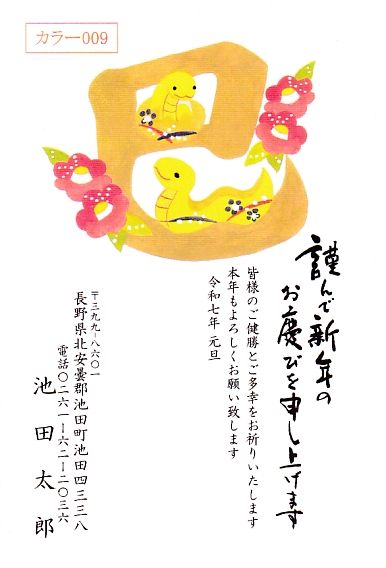 カラー009
巳
謹んで新年の
お慶びを申し上げます
皆様のご健勝とご多幸をお祈りいたします
本年もよろしくお願い致します
令和七年 元旦
〒三九九-八六〇一
長野県北安曇郡池田町池田四三三八
電話〇二六一-六二-二〇三六
池田太郎